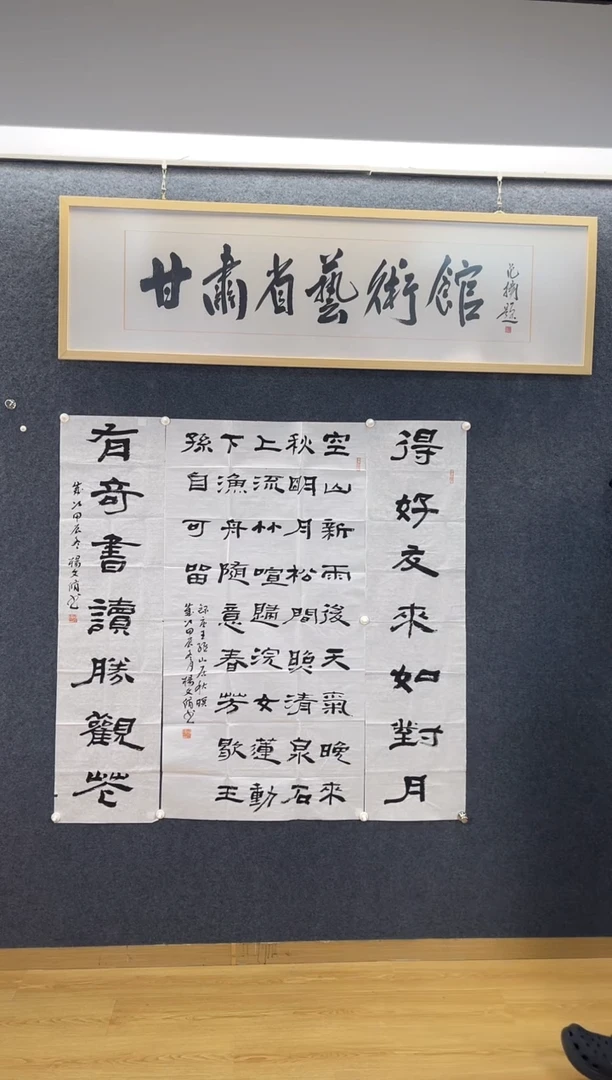 甘肅省藝術館
題
得好友來如對月
空山新雨後天氣晚來
秋明月松間照清泉石
上流竹喧歸浣女蓮動
下漁舟隨意春芳歇王
孫自可留
王維山居秋暝
歲次甲辰冬月楊文書
有奇書讀勝觀花
歲次甲辰冬楊文書